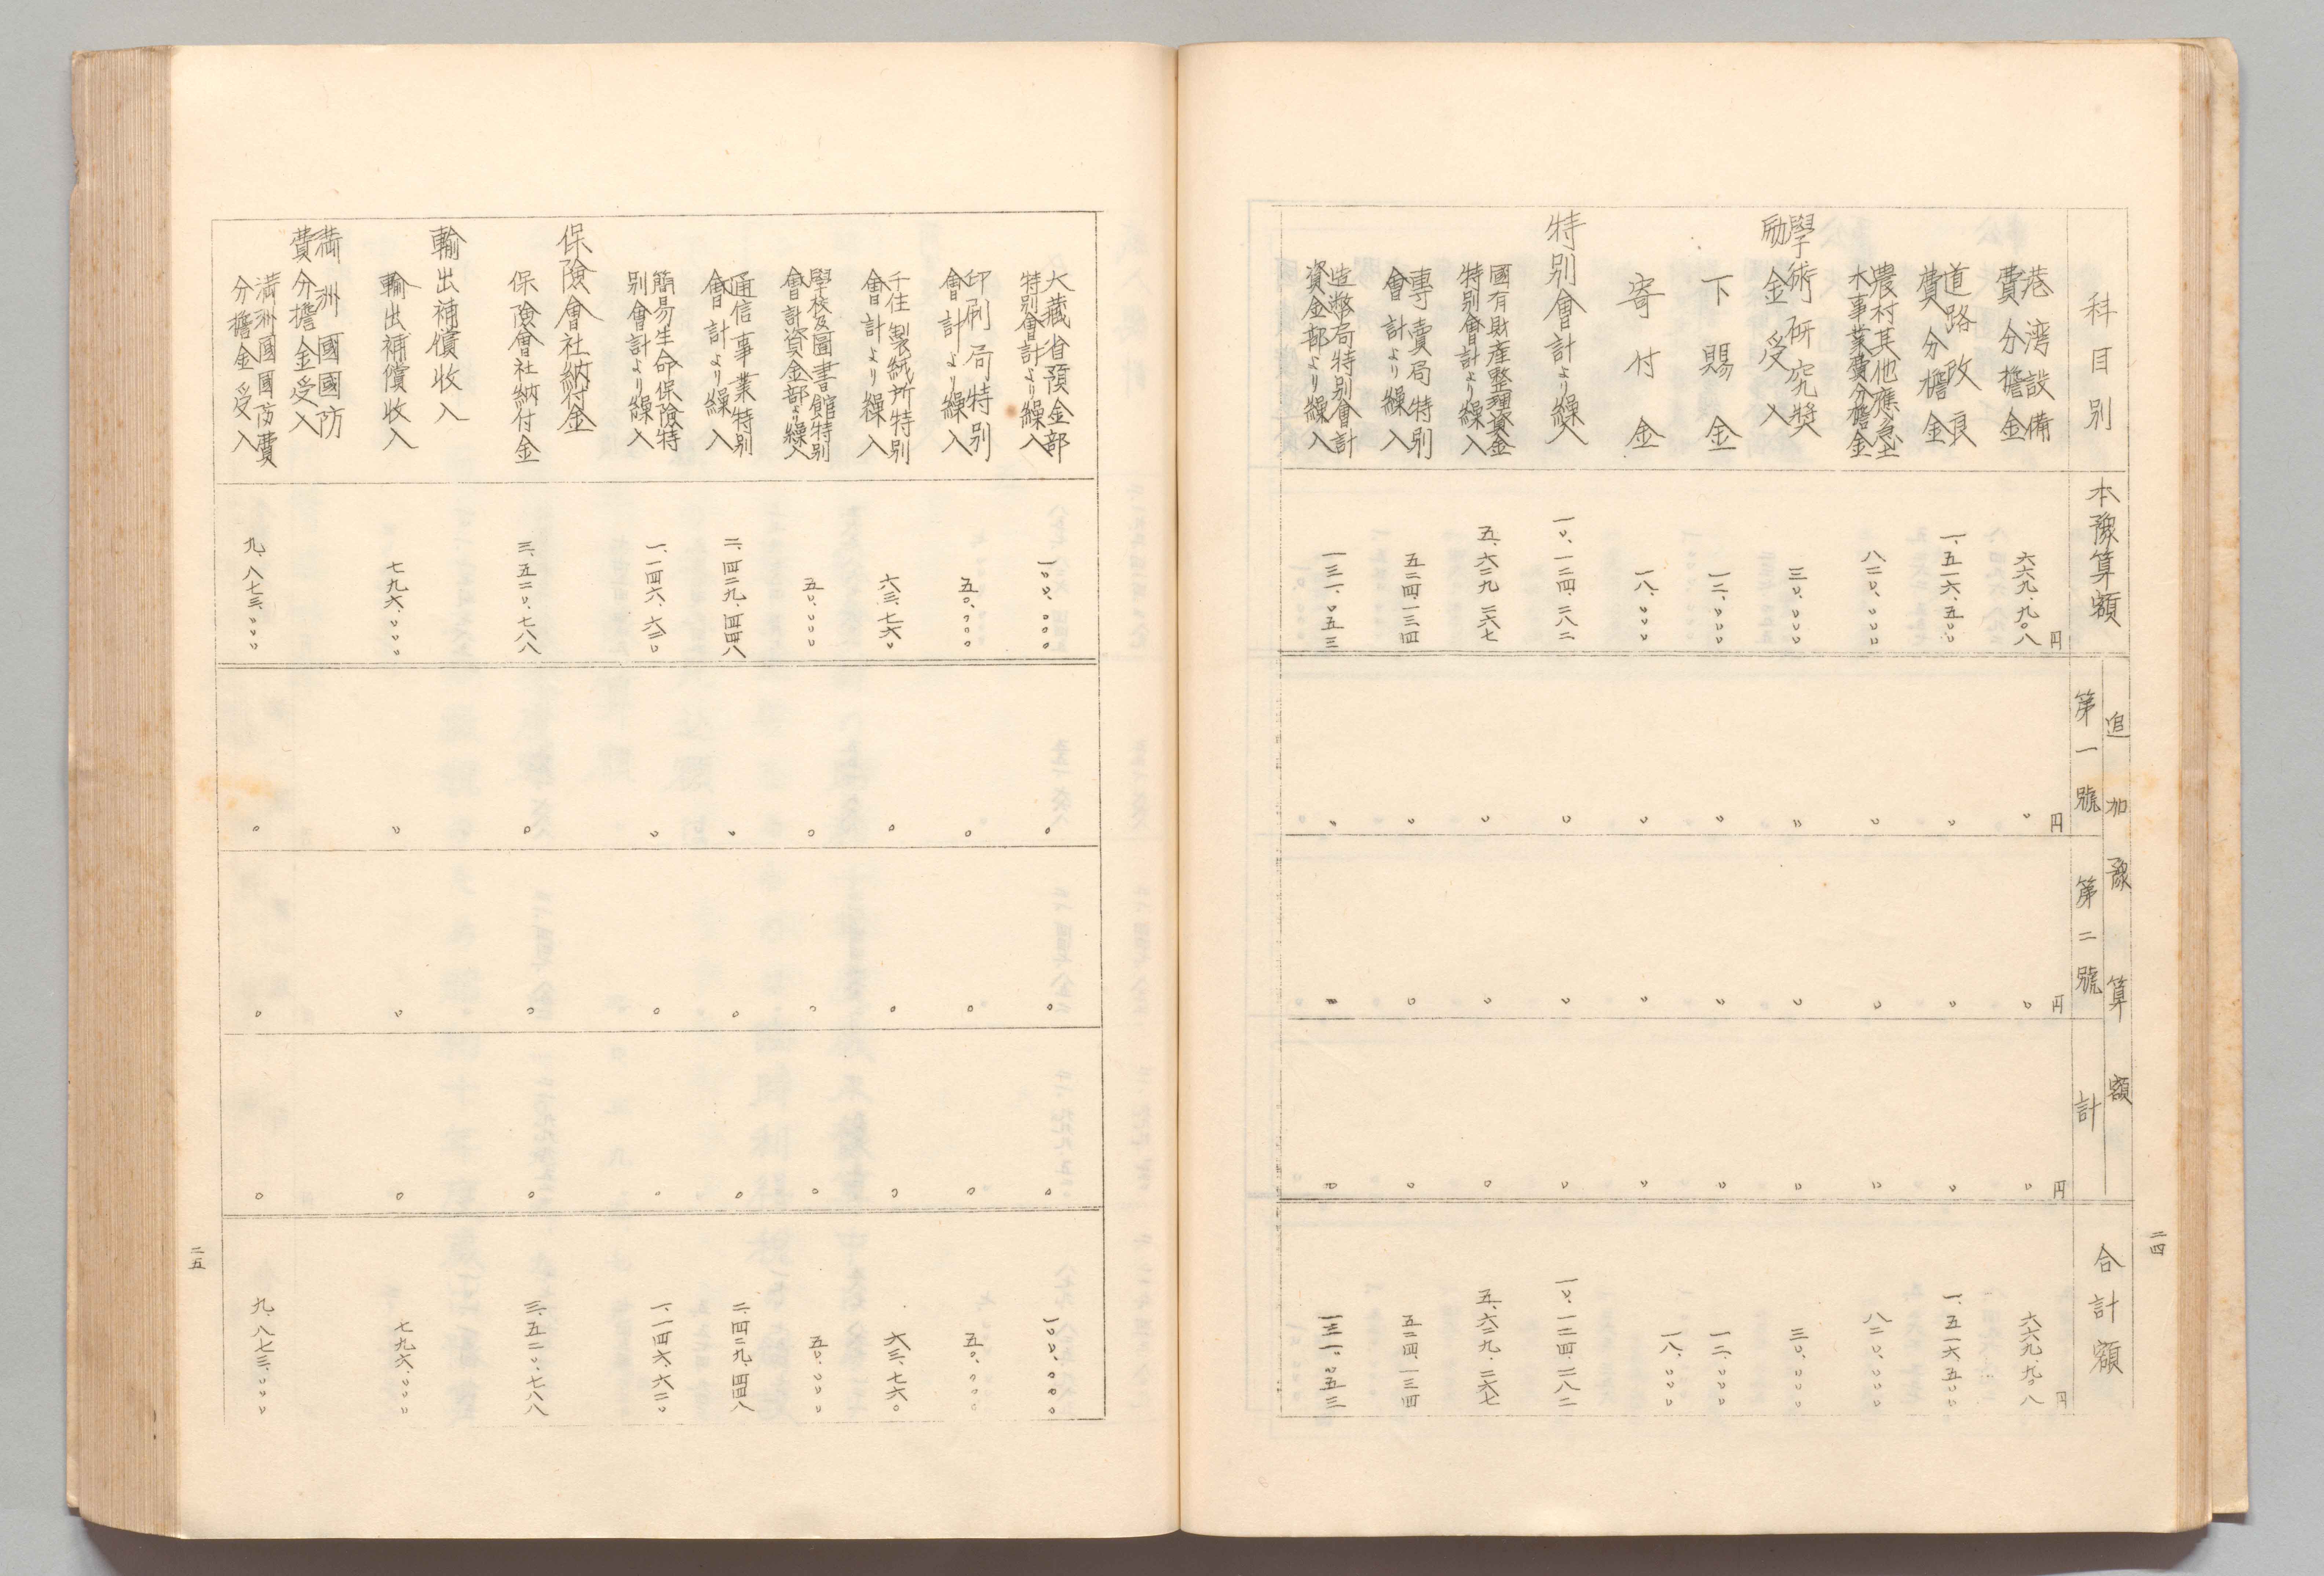 二四
科目別
本豫算額
追加豫算額
第一號
第二號
計
合計額
港湾設備
費分擔金
六六九、九〇八円
〇円
〇円
〇円
六六九、九〇八円
道路改良
費分擔金
一、五一六、五〇〇
〇
〇
〇
一、五一六、五〇〇
農村其他應急土
木事業費分擔金
八二〇、〇〇〇
〇
〇
〇
八二〇、〇〇〇
學術研究奬
勵金受入
三〇、〇〇〇
〇
〇
〇
三〇、〇〇〇
下賜金
一二、〇〇〇
〇
〇
〇
一二、〇〇〇
寄付金
一八、〇〇〇
〇
〇
〇
一八、〇〇〇
特別會計より繰入
一〇、一二四、二八二
〇
〇
〇
一〇、一二四、二八二
國有財産整理資金
特別會計より繰入
五、六二九、二六七
〇
〇
〇
五、六二九、二六七
專賣局特別
會計より繰入
五二四、一三四
〇
〇
〇
五二四、一三四
造幣局特別會計
資金部より繰入
一三一、〇五三
〇
〇
〇
一三一、〇五三
大藏省預金部
特別會計より繰入
一〇〇、〇〇〇
〇
〇
〇
一〇〇、〇〇〇
印刷局特別
會計より繰入
五〇、〇〇〇
〇
〇
〇
五〇、〇〇〇
千住製絨所特別
會計より繰入
六三、七六〇
〇
〇
〇
六三、七六〇
學校及圖書館特別
會計資金部より繰入
五〇、〇〇〇
〇
〇
〇
五〇、〇〇〇
通信事業特別
會計より繰入
二、四二九、四四八
〇
〇
〇
二、四二九、四四八
簡易生命保險特
別會計より繰入
一、一四六、六二〇
〇
〇
〇
一、一四六、六二〇
保險會社納付金
保險會社納付金
三、五二〇、七八八
〇
〇
〇
三、五二〇、七八八
輸出補償收入
輸出補償收入
七九六、〇〇〇
〇
〇
〇
七九六、〇〇〇
満洲國國防
費分擔金受入
満洲國國防費
分擔金受入
九、八七三、〇〇〇
〇
〇
〇
九、八七三、〇〇〇
二五